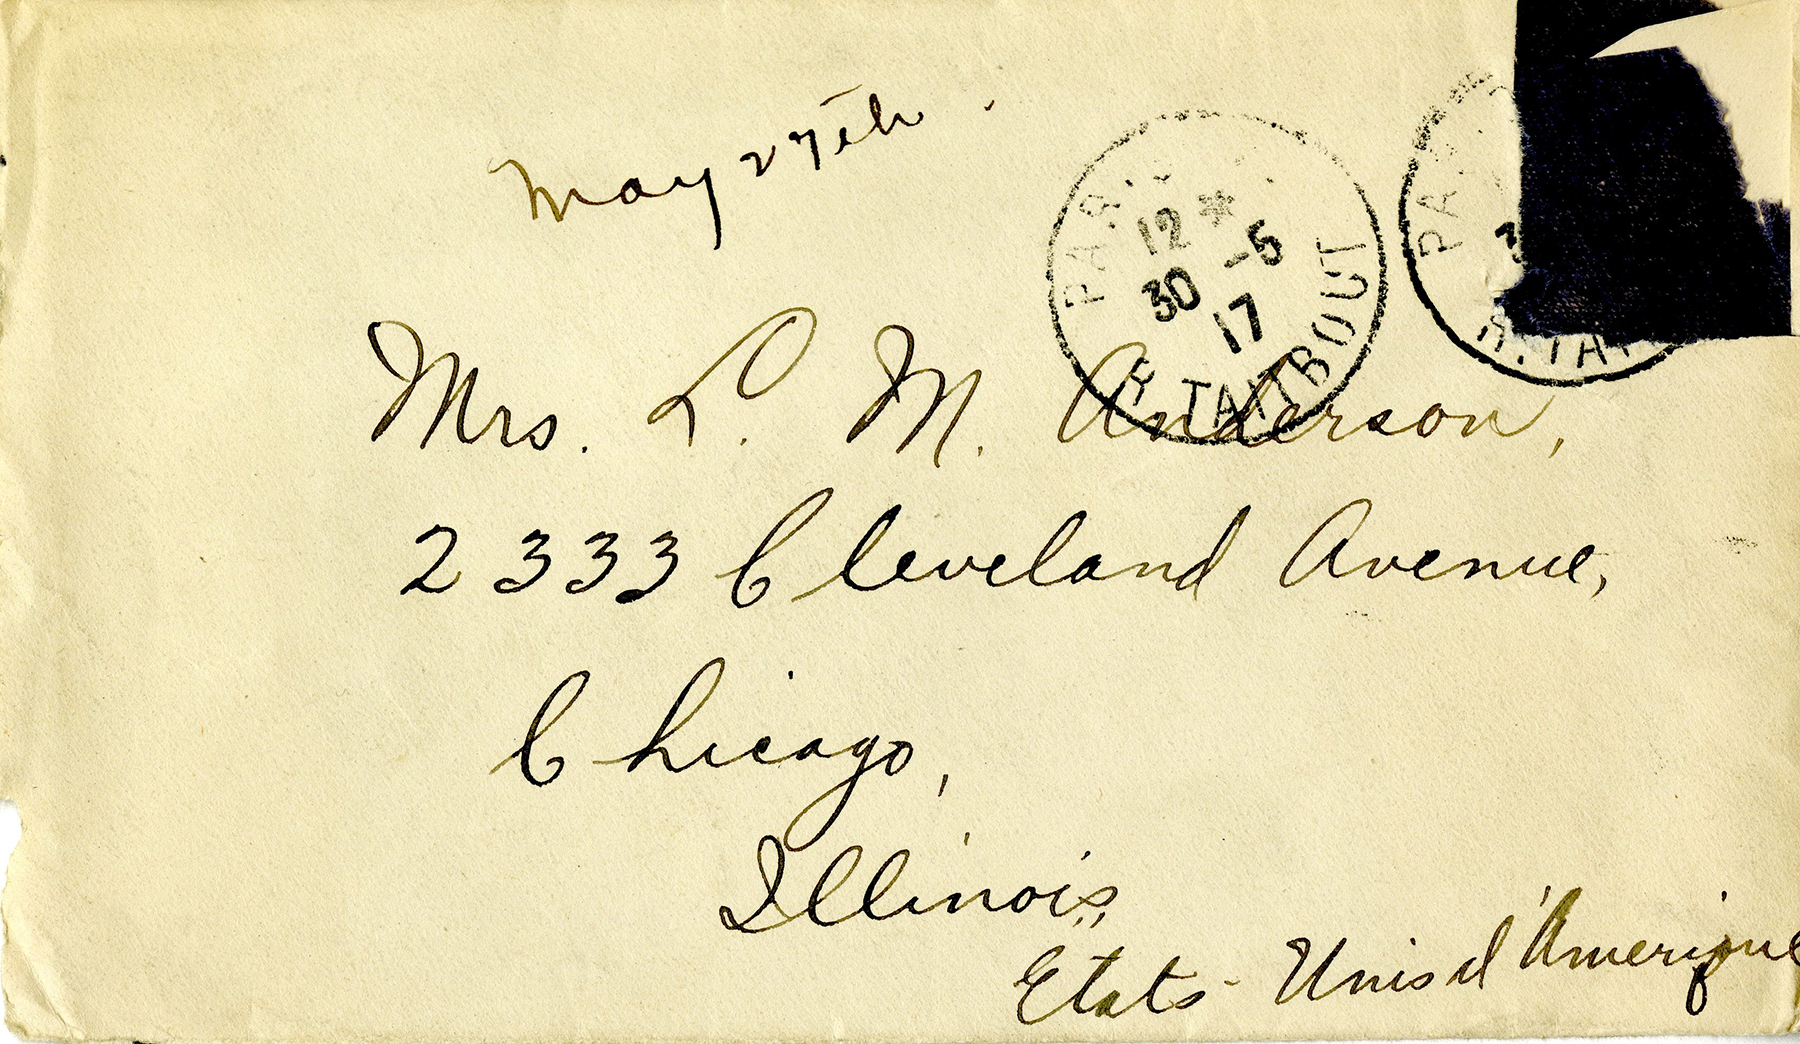 May 27th.
PARIS
12 *
30 -5
17
R. TAITBOUT
PA
3
R. TAI
Mrs. L. M. Anderson,
2333 Cleveland Avenue,
Chicago,
Illinois,
Etats-Unis d'Amerique